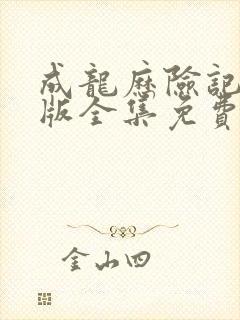 成龍歷險記
版全集免費
金山四